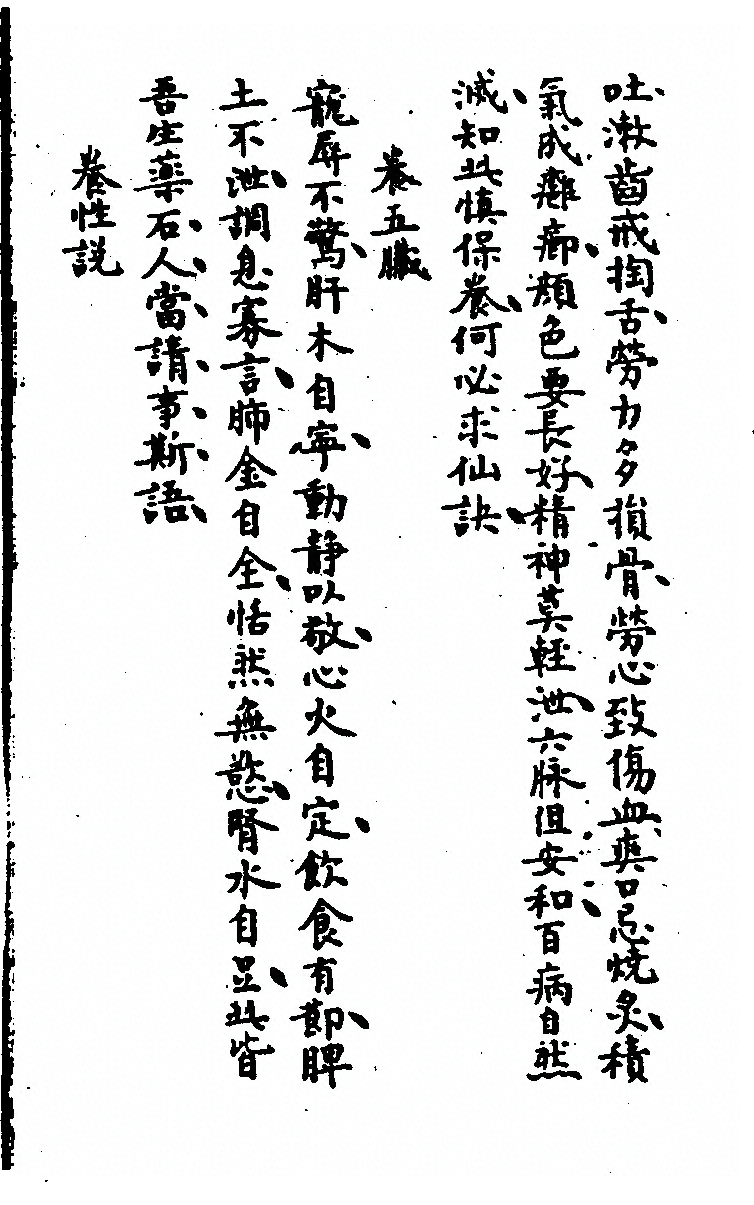 吐漱齒戒掏舌勞力多損骨勞心致傷血爽口忌燒炙積
氣成癱癤顏色要長好精神莫輕泄六脉但安和百病自然
滅知此慎保養何必求仙訣
養五臟
寵辱不驚肝木自寧動静以敬心火自定飲食有節脾
土不泄調息寡言肺金自全恬然無慾腎水自足此皆
吾生藥石人當請事斯語
養性說